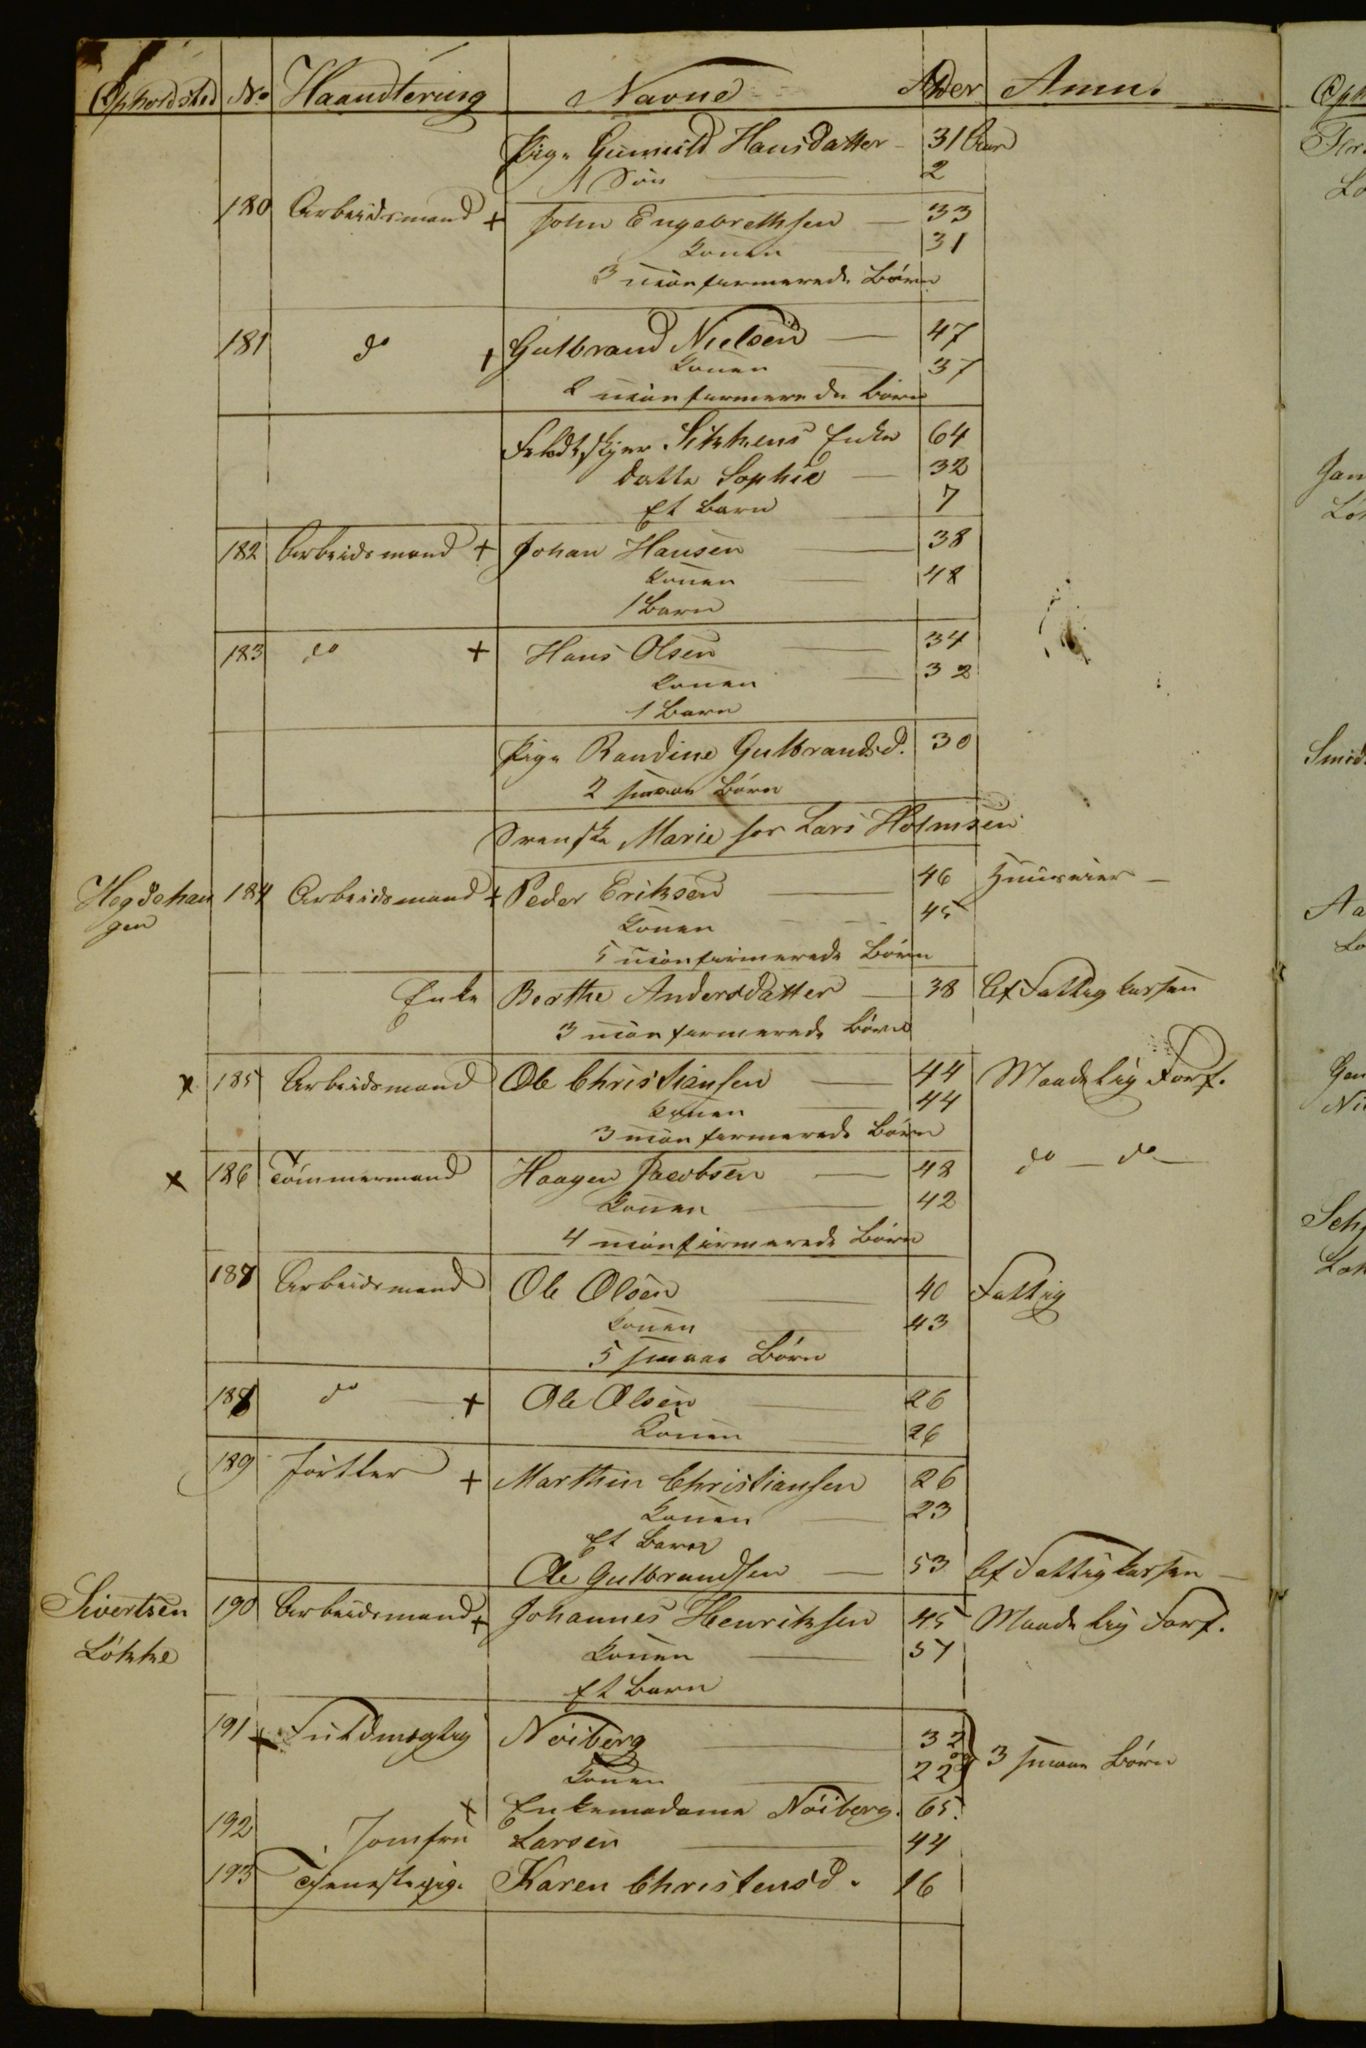 Opholdsted No Haandtering Navne Alder Anm.
Pige Gunnild Hansdatter - 31 Aar
1 Søn 2
180 Arbeidsmand + John Engebrethsen - 33
Konen 31
3 uconfirmerede Børn
181 do + Gulbrand Nielsen - 47
Konen 37
2 uconfirmerede Børn
Feldtskjer Sikkens Enke 64
Datte Sophie - 32
Et Barn 7
182 Arbeidsmand + Johan Hansen 38
Konen 48
1 Barn
183 do + Hans Olsen 34
Konen 32
1 Barn
Pige Randine Gulbrandsd. 30
2 smaae Børn
Svenske Marie hos Lars Holmsen
Hegdehau 184 Arbeidsmand + Peder Eriksen 46 Huuseier -
gen Konen 45
5 uconfirmerede Børn
Enke Berthe Andersdatter - 38 Af Fattigkassen
3 uconfirmerede Børn
x 185 Arbeidsmand Ole Christiansen - 44 Maadelig Forf.
Konen 44
3 uconfirmerede Børn
x 186 Tømmermand Haagen Jacobsen - 48 do - do -
Konen 42
4 uconfirmerede Børn
187 Arbeidsmand Ole Olsen 40 Fattig
Konen 43
5 smaae Børn
188 do + Ole Olsen 26
Konen 26
189 + Marthin Christiansen 26
Konen 23
Et Barn
Ole Gulbrandsen - 53 Af Fattigkassen -
Sivertsen 190 Arbeidsmand + Johannes Henriksen 45 Maadelig Forf.
Løkke Konen 57
Et Barn
191 x Fuldmægtig Nøiberg 32
Konen 22 3 smaae Børn
x Enkemadame Nøiberg. 65.
192 Jomfru Larsen 44
193 Tjenestepige Karen Christensd. 16